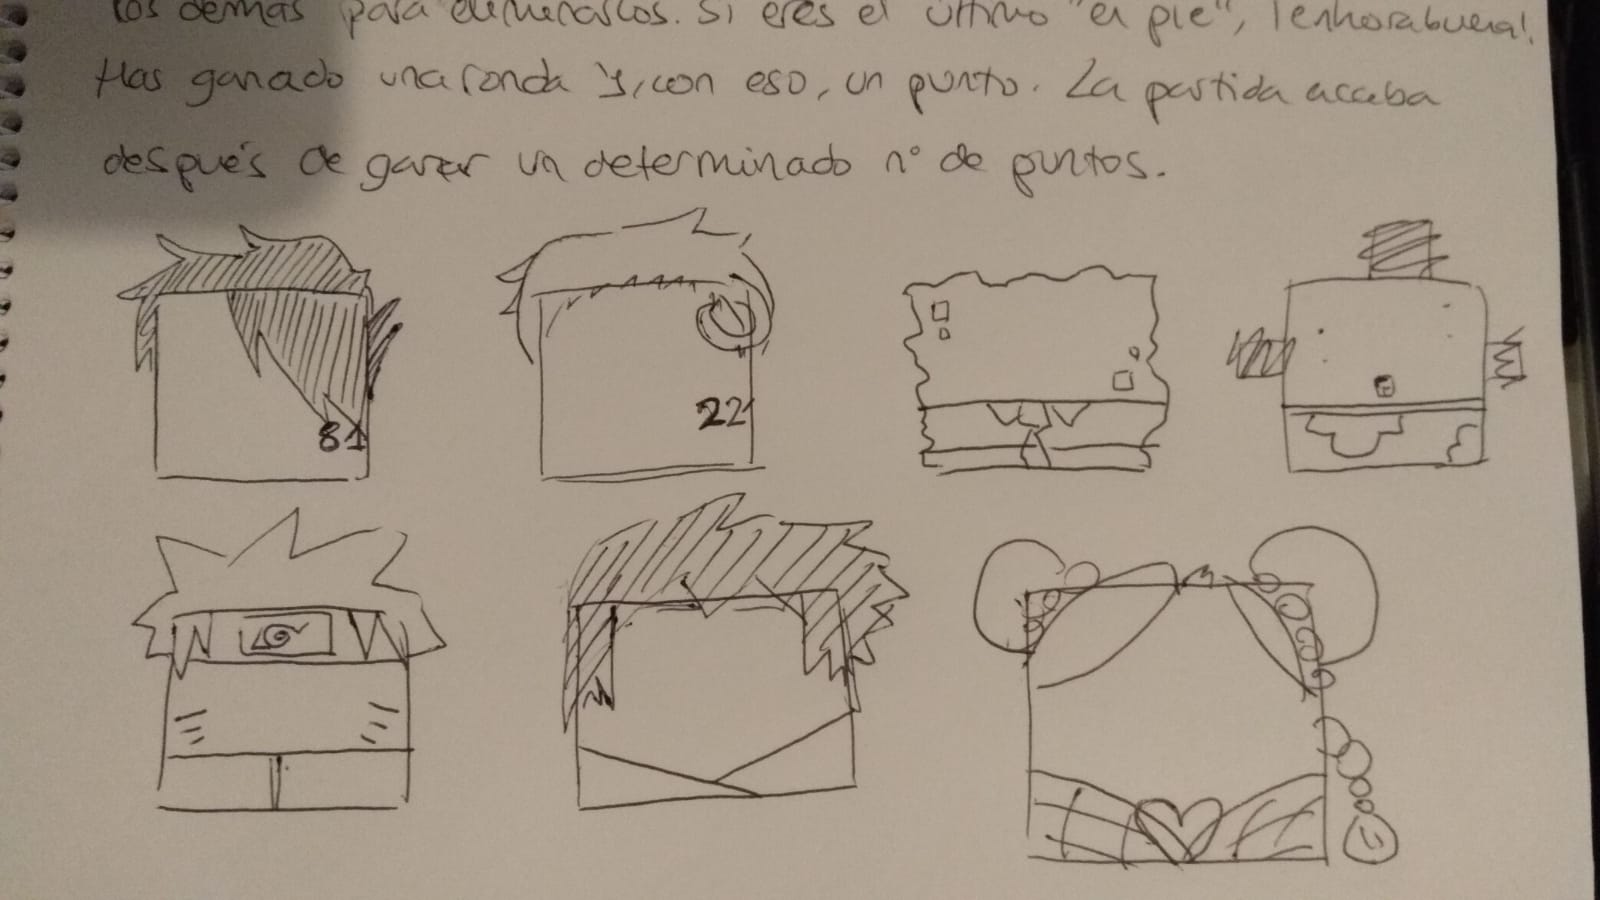 los demás para eliminarlos. Si eres el último "en pie", ¡enhorabuena!
Has ganado una ronda y, con eso, un punto. La partida accaba
después de ganar un determinado nº de puntos.
81
22